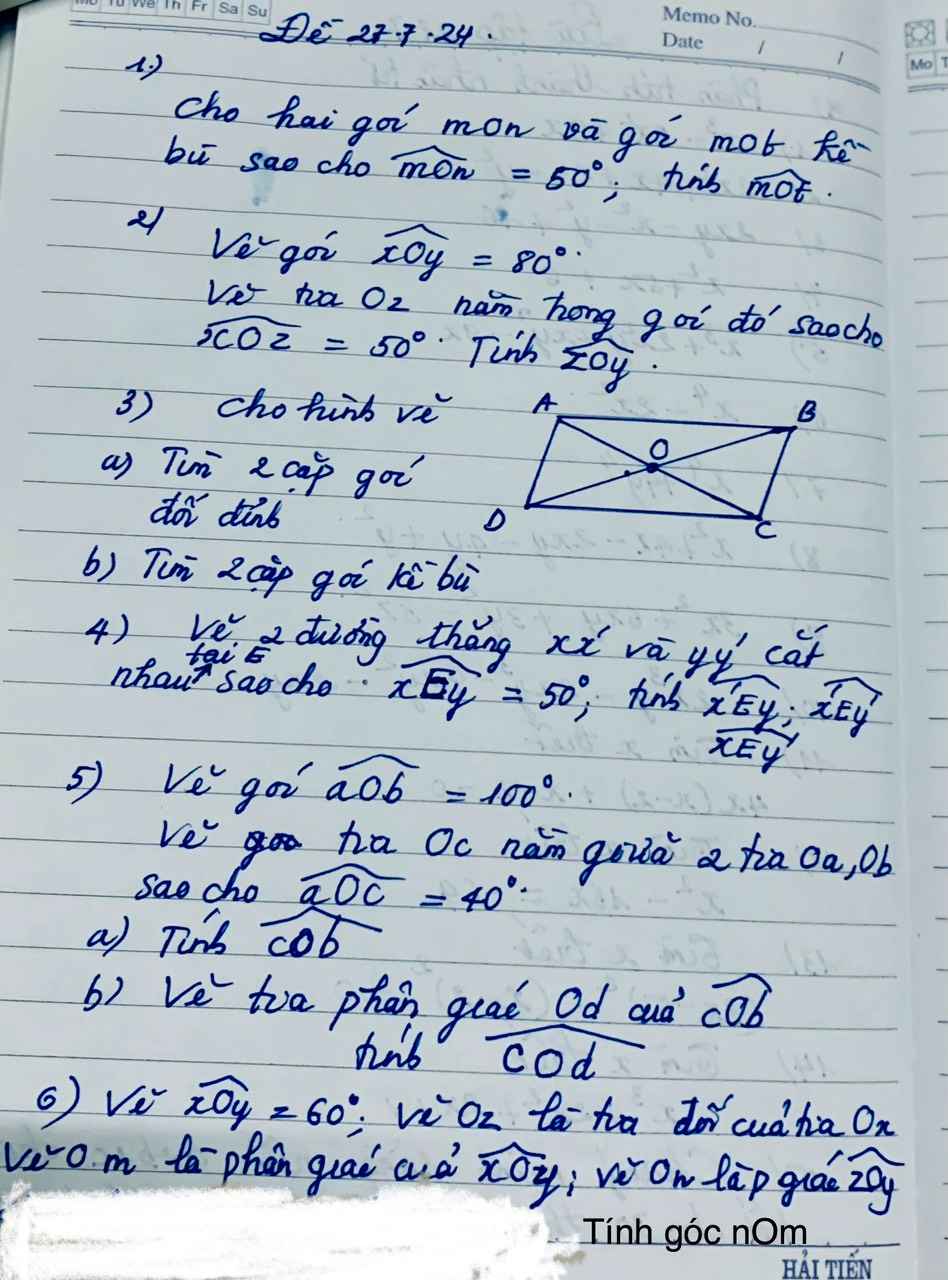 Mo Tu We Th Fr Sa Su
Memo No.
Date / /
Mo T
Đề 27.7.24.
1.)
Cho hai góc mOn và góc mOt kề
bù sao cho mOn = 50°; tính mOt.
2/
Vẽ góc xOy = 80°.
Vẽ tia Oz nằm trong góc đó sao cho
xOz = 50°. Tính zOy.
3) Cho hình vẽ
A B
O
D C
a) Tìm 2 cặp góc
đối đỉnh
b) Tìm 2 cặp góc kề bù
4) Vẽ 2 đường thẳng xx' và yy' cắt
tại E
nhau sao cho xEy = 50°; tính x'Ey; x'Ey'
xEy'
5) Vẽ góc aOb = 100°.
Vẽ tia Oc nằm giữa 2 tia Oa, Ob
sao cho aOc = 40°.
a) Tính cOb
b) Vẽ tia phân giác Od của cOb
tính cOd
6) Vẽ xOy = 60°; vẽ Oz là tia đối của tia Ox
Vẽ Om là phân giác của xOy; vẽ On là p giác zOy
Tính góc nOm
HẢI TIẾN